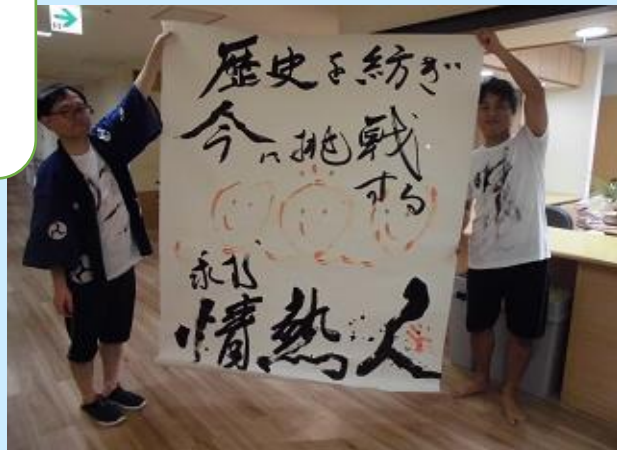 歴史を紡ぎ
今に挑戦
する
永遠
情熱人